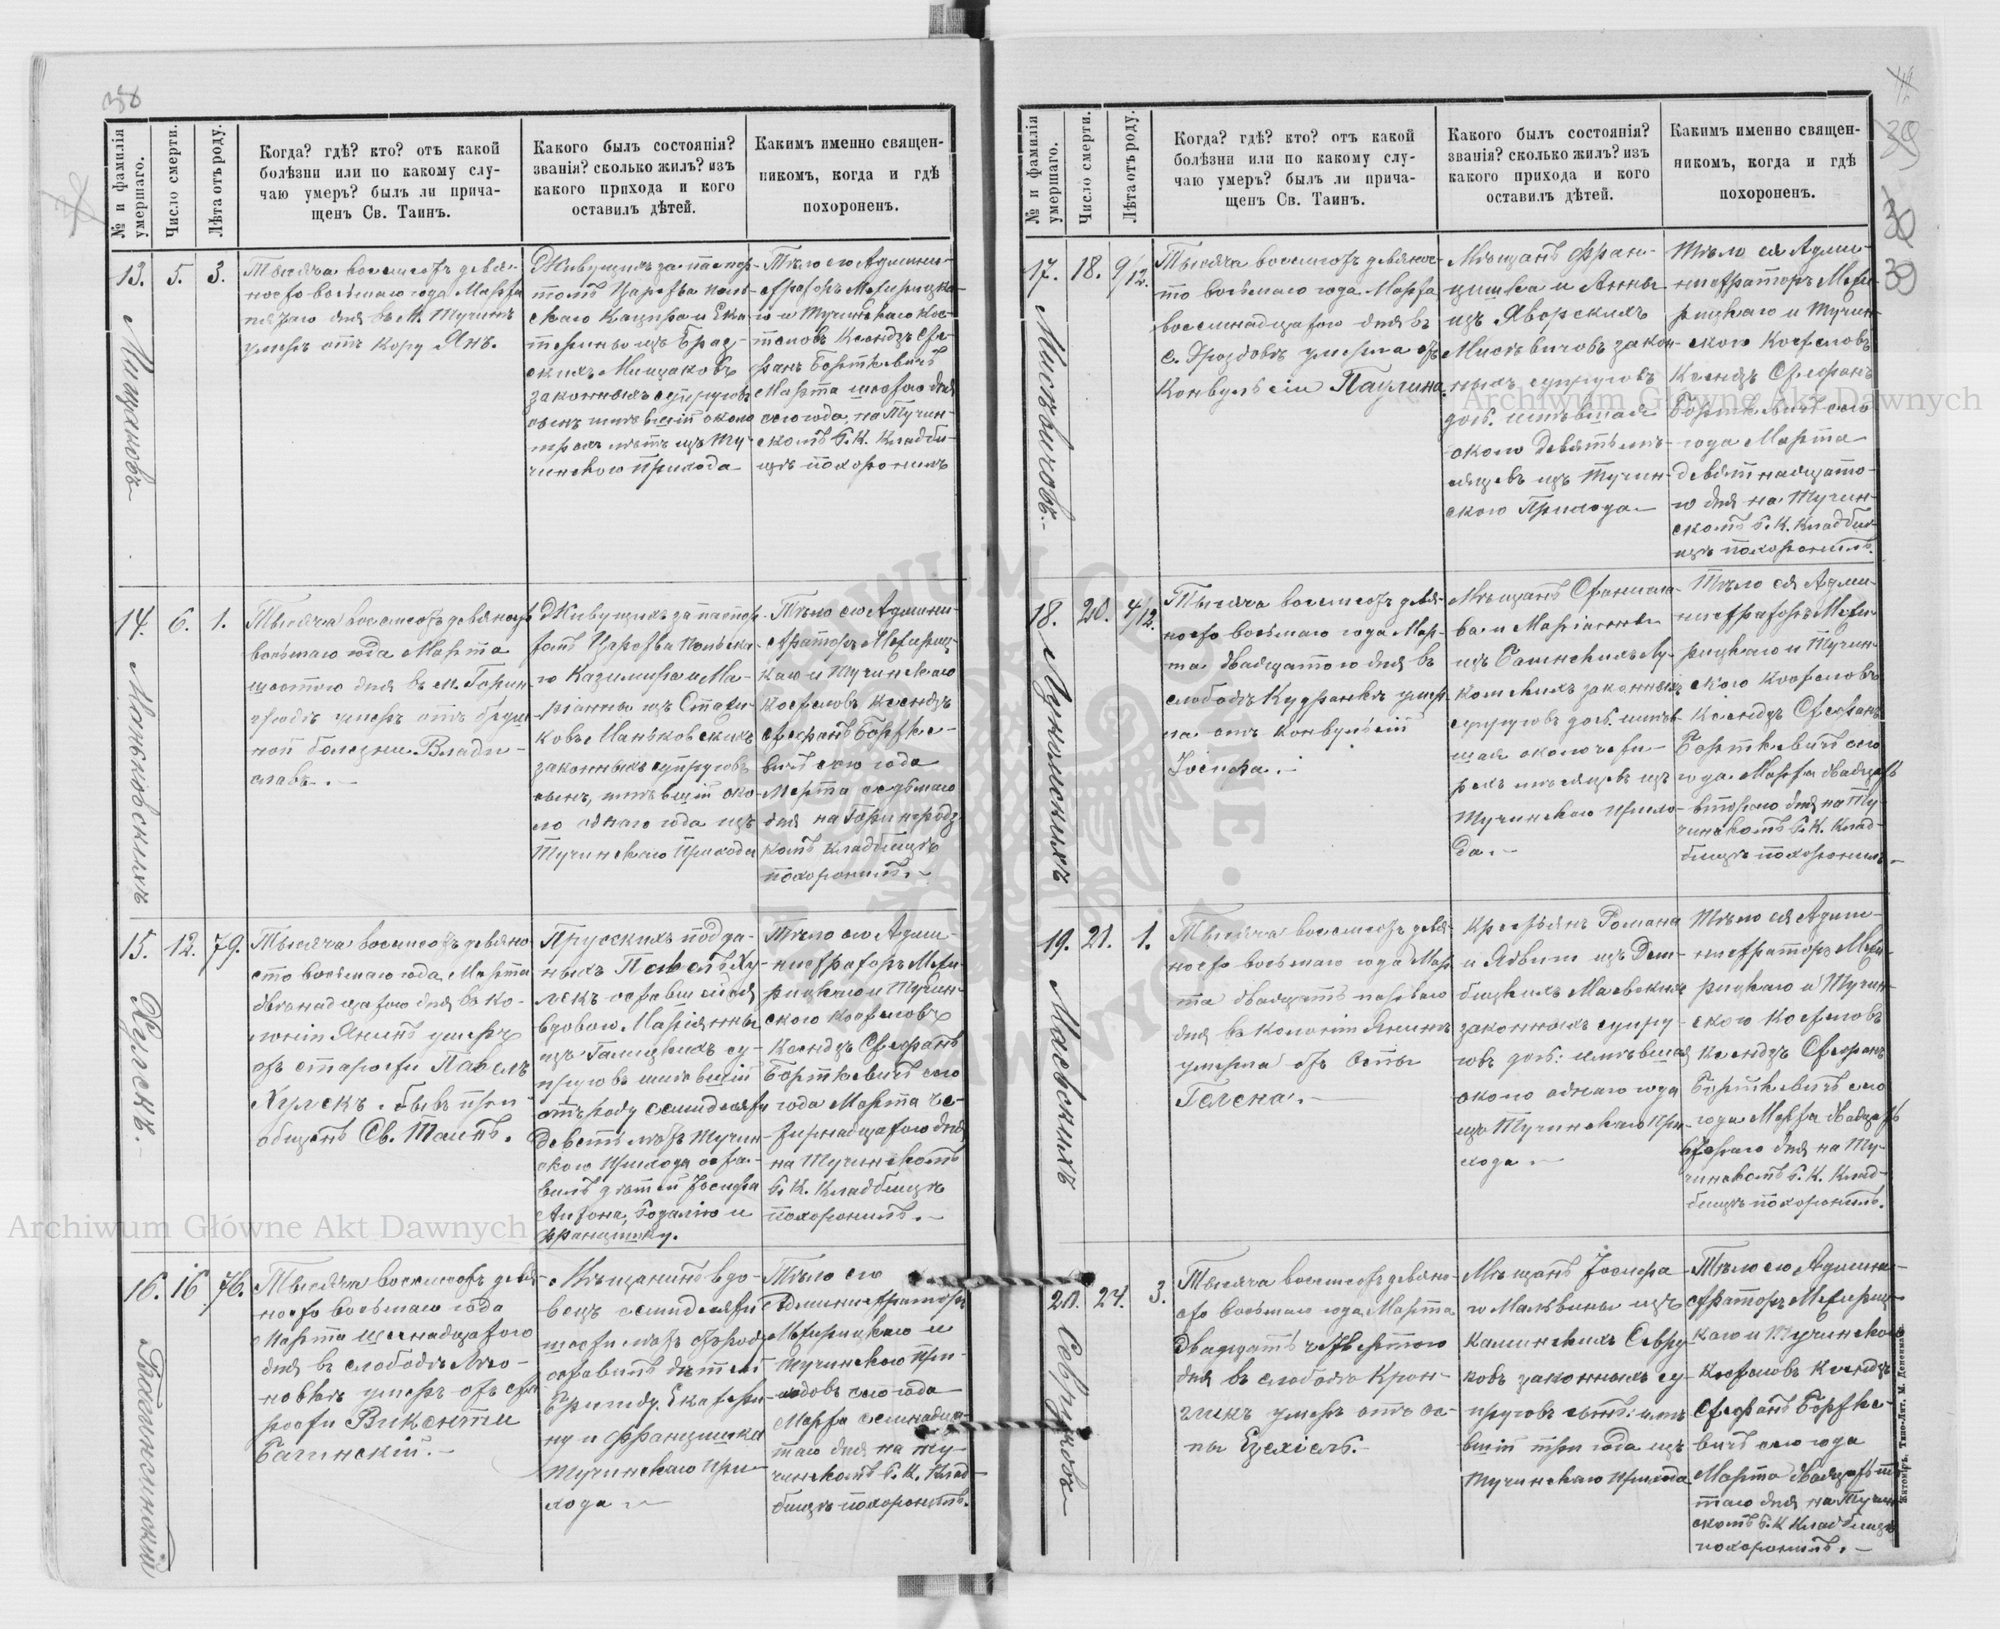 358
№ и фамилія умершаго.
Число смерти.
Лѣта отъ роду.
Когда? гдѣ? кто? отъ какой
болѣзни или по какому слу-
чаю умеръ? былъ ли прича-
щенъ Св. Таинъ.
Какого былъ состоянія?
званія? сколько жилъ? изъ
какого прихода и кого
оставилъ дѣтей.
Какимъ именно священ-
никомъ, когда и гдѣ
похороненъ.
13.
5.
3.
Тысяча восемсотъ девя-
носто восьмаго года Марта
пятаго дня въ м. Тучинѣ
умеръ отъ кору Янъ.
Живущихъ за паспор-
томъ Царства Поль-
скаго Каспра и Ека-
терины изъ
законныхъ супруговъ
сынъ имѣвшій около
трехъ лѣтъ изъ Ту-
чинскаго Прихода
Тѣло его Админи-
страторъ Межирицка-
го и Тучинскаго Кос-
теловъ Ксендзъ Сте-
фанъ Борткевичъ
Марта шестого дня
сего года, на Тучин-
скомъ Р. К. Кладби-
щѣ похоронилъ
14.
Маньковскихъ
6.
1.
Тысяча восемсотъ девяносто
восьмаго года Марта
шестого дня въ м. Горин-
градѣ умеръ отъ
ной болезни Влади-
славъ. —
Живущихъ за паспор-
томъ Царства Польска-
го Казимира и Ма-
ріанны изъ
Маньковскихъ
законныхъ супруговъ
сынъ, имѣвшій око-
ло одного года изъ
Тучинскаго Прихода
Тѣло его Админи-
страторъ Межириц-
каго и Тучинскаго
Костеловъ Ксендзъ
Стефанъ Бортке-
вичъ сего года
Марта седьмаго
дня на Горинградс
комъ Кладбищѣ
похоронилъ. —
15.
Хулекъ.
12.
79.
Тысяча восемсотъ девяно-
сто восьмаго года Марта
двѣнадцатого дня въ ко-
лоніи Янинѣ умеръ
отъ старости Павелъ
Хулекъ. бывъ прі-
общенъ Св. Таинъ.
Прусскихъ подда-
ныхъ Павелъ Ху-
лекъ
вдовою Маріянны
изъ Галицкихъ су-
пруговъ имѣвшій
отъ роду семидесяти
девять лѣтъ Тучин-
скаго Прихода оста-
вилъ дѣтей Іосифа
Антона, Розалію и
Францишку.
Тѣло его Адми-
нистраторъ Межи-
рицкаго и Тучин-
скаго Костеловъ
Ксендзъ Стефанъ
Борткевичъ сего
года Марта че-
тырнадцатого дня
на Тучинскомъ
Р. К. Кладбищѣ
похоронилъ. —
16.
Багинскій
16
76.
Тысяча восемсотъ девя-
носто восьмаго года
Марта шеснадцатого
дня въ слободѣ
умеръ отъ ста
рости Викентій
Багинскій. —
Мѣщанинъ вдо-
вецъ семидесяти
шести лѣтъ отъ роду
оставилъ дѣтей
Бригиду, Екатери-
ну и Францишка
Тучинскаго При-
хода —
Тѣло его
Администраторъ
Межирицкаго и
Тучинскаго При-
ходовъ сего года
Марта семнадца-
таго дня на Ту-
чинскомъ Р. К. Клад-
бищѣ похоронилъ.
30
39
№ и фамилія умершаго.
Число смерти.
Лѣта отъ роду.
Когда? гдѣ? кто? отъ какой
болѣзни или по какому слу-
чаю умеръ? былъ ли прича-
щенъ Св. Таинъ.
Какого былъ состоянія?
званія? сколько жилъ? изъ
какого прихода и кого
оставилъ дѣтей.
Какимъ именно священ-
никомъ, когда и гдѣ
похороненъ.
17.
Мисѣвичовъ.
18.
9/12.
Тысяча восемсотъ девянос-
то восьмаго года Марта
восемнадцатого дня въ
с. Дроздовѣ умерла отъ
Конвульсіи Паулина.
Мѣщанъ Фран-
цишка и Анны
изъ Яворскихъ
Мисѣвичовъ закон-
ныхъ супруговъ
доч. имѣвшая
около девяти мѣ-
сяцевъ изъ Тучин-
скаго Прихода. —
Тѣло ея Адми-
нистраторъ Межи-
рицкаго и Тучин-
скаго Костеловъ
Ксендзъ Стефанъ
Борткевичъ сего
года Марта
девятнадцато-
го дня на Тучин-
скомъ Р. К. Кладби-
щѣ похоронилъ.
18.
20.
4/12.
Тысяча восемсотъ девя-
носто восьмаго года Мар-
та двадцатого дня въ
слободѣ Кудранкѣ умер-
ла отъ конвульсій
Іосифа. —
Мѣщанъ Станисла-
ва и Маріанны
изъ
законныхъ
супруговъ доч. имѣв-
шая около четы-
рехъ мѣсяцевъ изъ
Тучинскаго Прихо-
да. —
Тѣло ея Адми-
нистраторъ Межи-
рицкаго и Тучин-
скаго Костеловъ
Ксендзъ Стефанъ
Борткевичъ сего
года Марта двадцать
второго дня на Ту-
чинскомъ Р. К. Клад-
бищѣ похоронилъ. —
19.
Маевскихъ
21.
1.
Тысяча восемсотъ девя-
носто восьмаго года Мар-
та двадцать перваго
дня въ колоніи Янинѣ
умерла отъ Оспы
Гелена. —
Крестьянъ Романа
и Ядвиги изъ Дем-
бицкихъ Маевскихъ
законныхъ супру-
говъ доч: имѣвшая
около одного года
изъ Тучинскаго При-
хода. —
Тѣло ея Адми-
нистраторъ Межи-
рицкаго и Тучин-
скаго Костеловъ
Ксендзъ Стефанъ
Борткевичъ сего
года Марта двадцать
второго дня на Ту-
чинскомъ Р. К. Клад-
бищѣ похоронилъ.
20.
Севруковъ
24.
3.
Тысяча восемсотъ девяно-
сто восьмаго года Марта
двадцать четвертого
дня въ слободѣ
умеръ отъ ос-
пы Езехіель. —
Мѣщанъ Іосифа
и Мальвины изъ
Калинскихъ Севру-
ковъ законныхъ су-
пруговъ сынъ: имѣ-
вшій три года изъ
Тучинскаго Прихода
Тѣло его Админи-
страторъ Межириц-
каго и Тучинскаго
Костеловъ Ксендзъ
Стефанъ Бортке-
вичъ сего года
Марта двадцать пя-
таго дня на Тучин-
скомъ Р. К. Кладбищѣ
похоронилъ. —
Житоміръ. Типо-Лит. М. Дененмана.
Archiwum Główne Akt Dawnych
Archiwum Główne Akt Dawnych